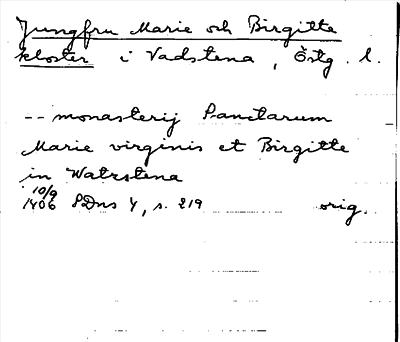 Jungfru Marie och Birgitte
kloster i Vadstena, Östg. l.
-- monasterij Sanctarum
Marie virginis et Birgitte
in Watzstena
10/9
1406 SDns 4, s. 219 orig.